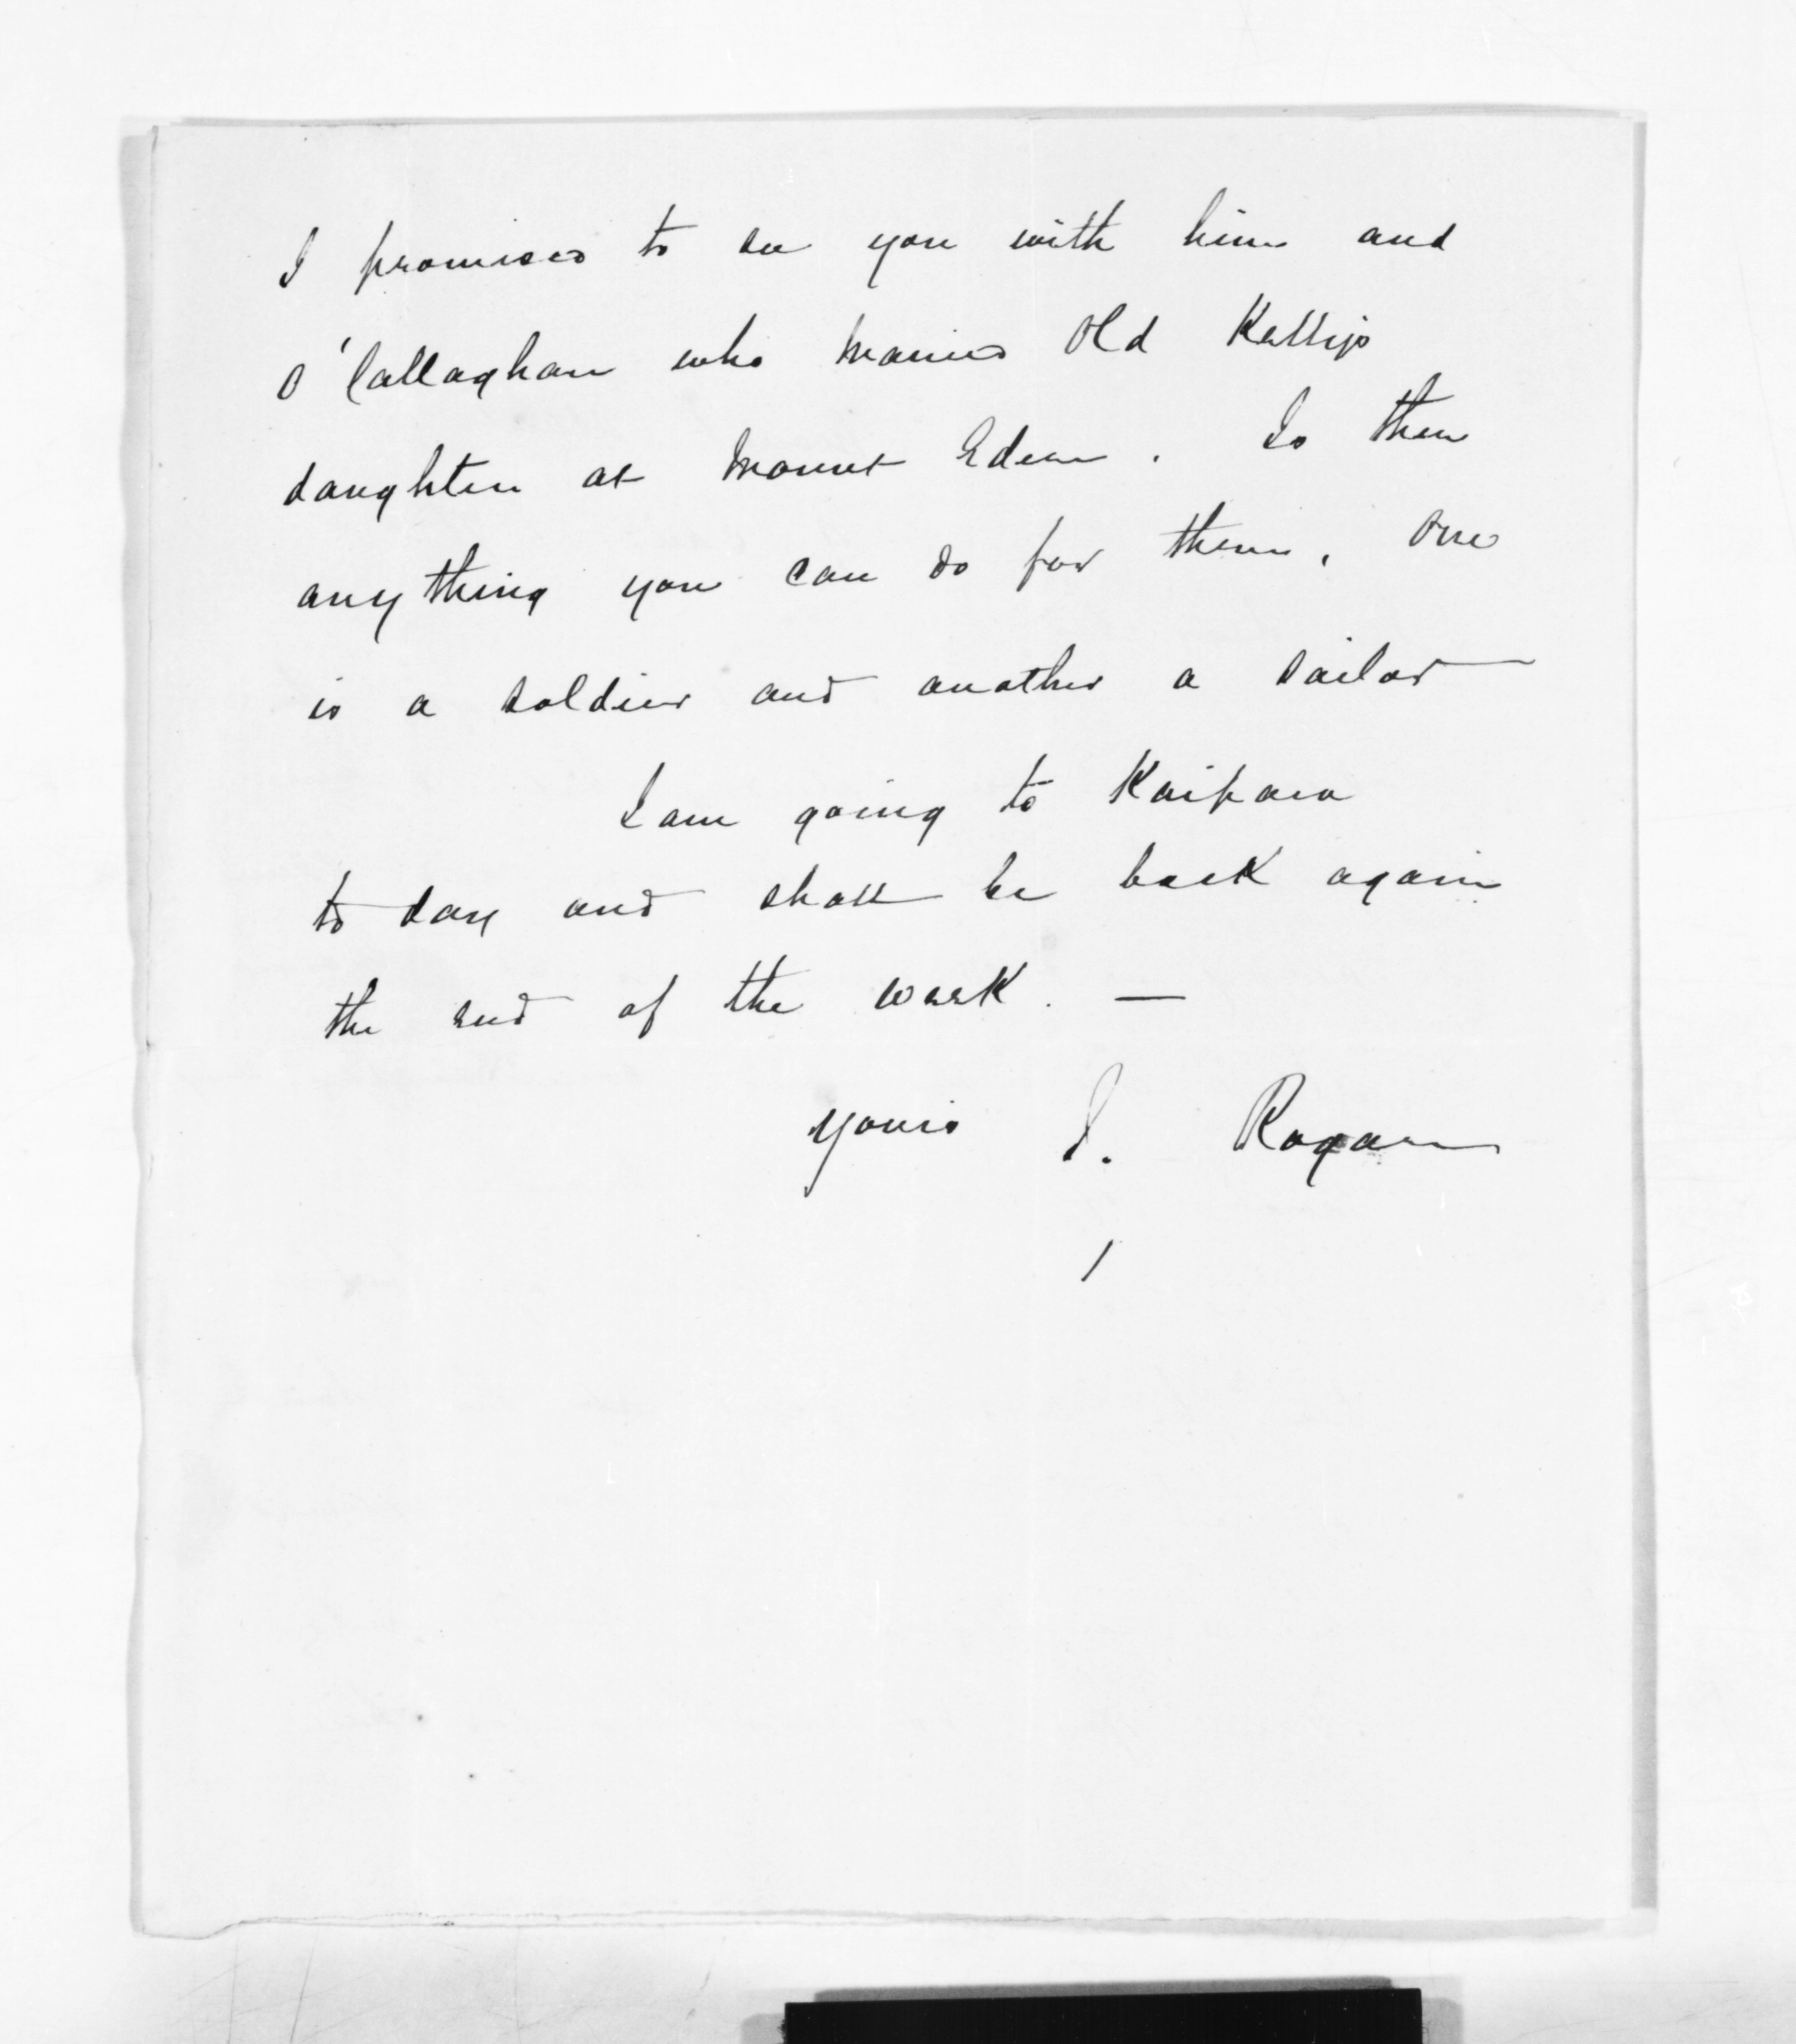 I promised to see you with him and
O'Callaghan who married Old Kelly's
daughter at Mount Eden. Is there
any thing you can do for them, One
is a soldier and another a sailor
I am going to Kaipara
to day and shall be back again
the end of the week. —
yours J. Rogan